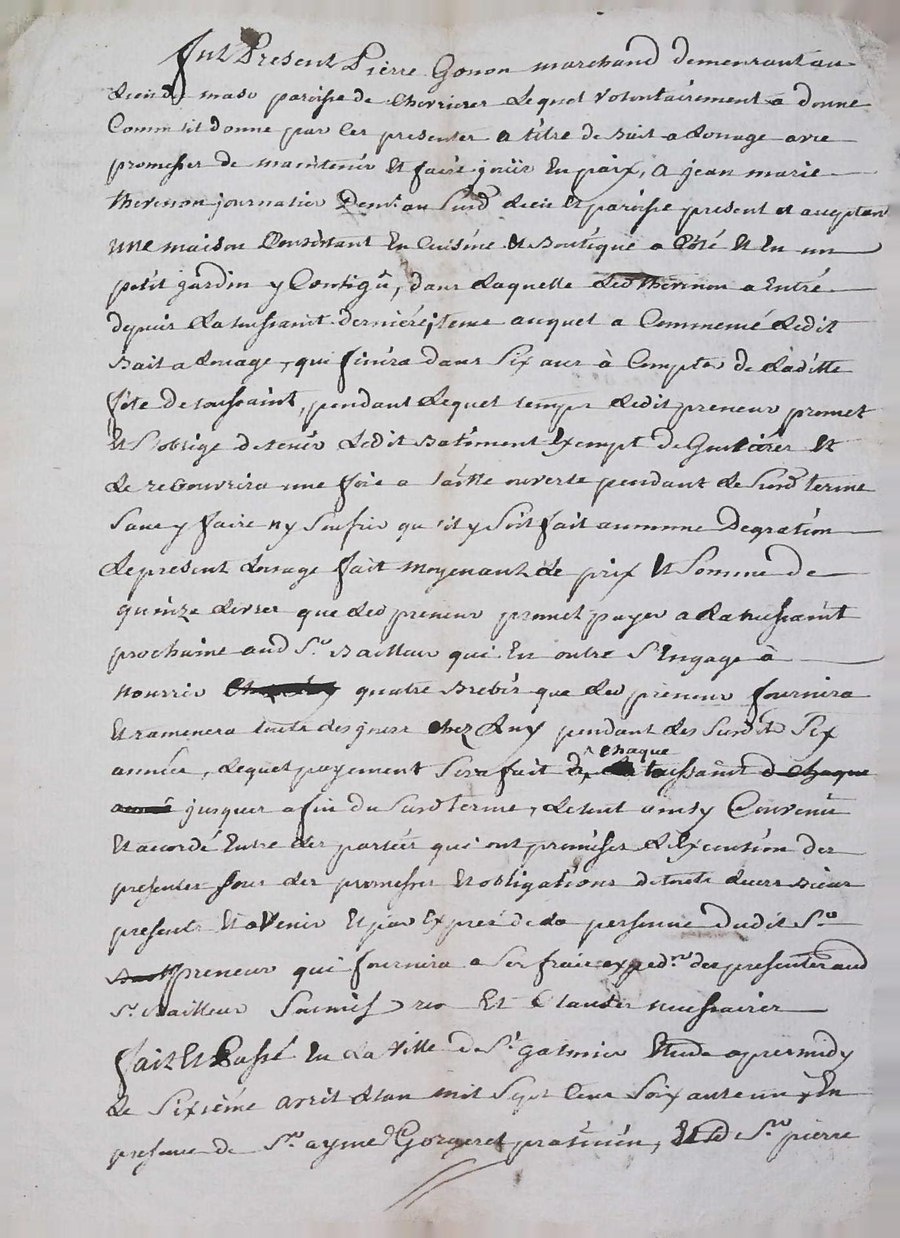 fut Present Pierre Gonon marchand demeurant au
Lieu de maso paroisse de Chevrieres Lequel volontairement a donné
Comm il donne par Les presentes a titre de Bail a Louage avec
promesses de maintenir Et faire joüir En paix, a jean marie
thevenon journalier Demt au Surd Lieu Et paroisse present et acceptant
une maison Consistant En Cuisine Et Boutique a Côté Et En un
petit jardin y Contigû, dans Laquelle Led thevenon a Entré
depuis La toussaint derniere, teme auquel a Commencé Ledit
Bail a Louage, qui finira dans Six ans à Compter de Laditte
fête de toussaint, pendant Lequel temps Ledit preneur promet
Et S'oblige de tenir Ledit Batiment Exempt de Goutieres Et
Le recouvrira une fois a taille ouverte pendant Le Surd terme
Sans y faire ny Soufrir qu'il y Soit fait aucunne Degration
Le present Louage fait moyenant Le prix Et Somme de
quinze Livres que Led preneur promet payer a La toussaint
prochaine aud Sr. Bailleur qui En outre S'engage à
nourrir quatre Brebis que Led preneur fournira
Et ramenera toutes chez Luy pendant Les Surdts Six
années, Lequel payement Sera fait chaque toussaint d chaque
année jusques a fin du Surd terme, Le tout ainsy Convenu
Et accordé Entre Les parties qui ont promises L'Execution des
presentes Sous Les promesses Et obligations de touts Leurs Biens
presents Et a Venir Et par Exprès de La personne Dudit Sr
Baill preneur qui fournira a Ses frais exped.on des presentes aud
Sr. Bailleur Soumis ren Et Clauses necessaires
fait Et Passé En La Ville de St galmier Etude apres midy
Le Sixième avril L'an mil Sept Cent Soixante un, En
presence de Sr. aymé Gorgeret praticien, Et de Sr. pierre